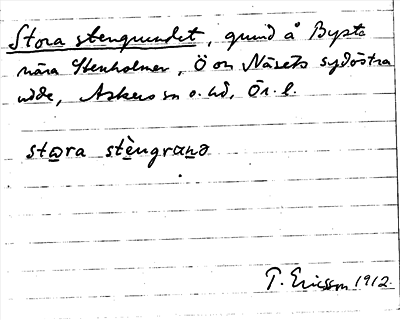 Stora stengrundet, grund å Bysta
nära Stenholmen, Ö om Näsets sydöstra
udde, Askers sn o. hd, Ör. l.
stora stèngrund
T. Ericsson 1912.